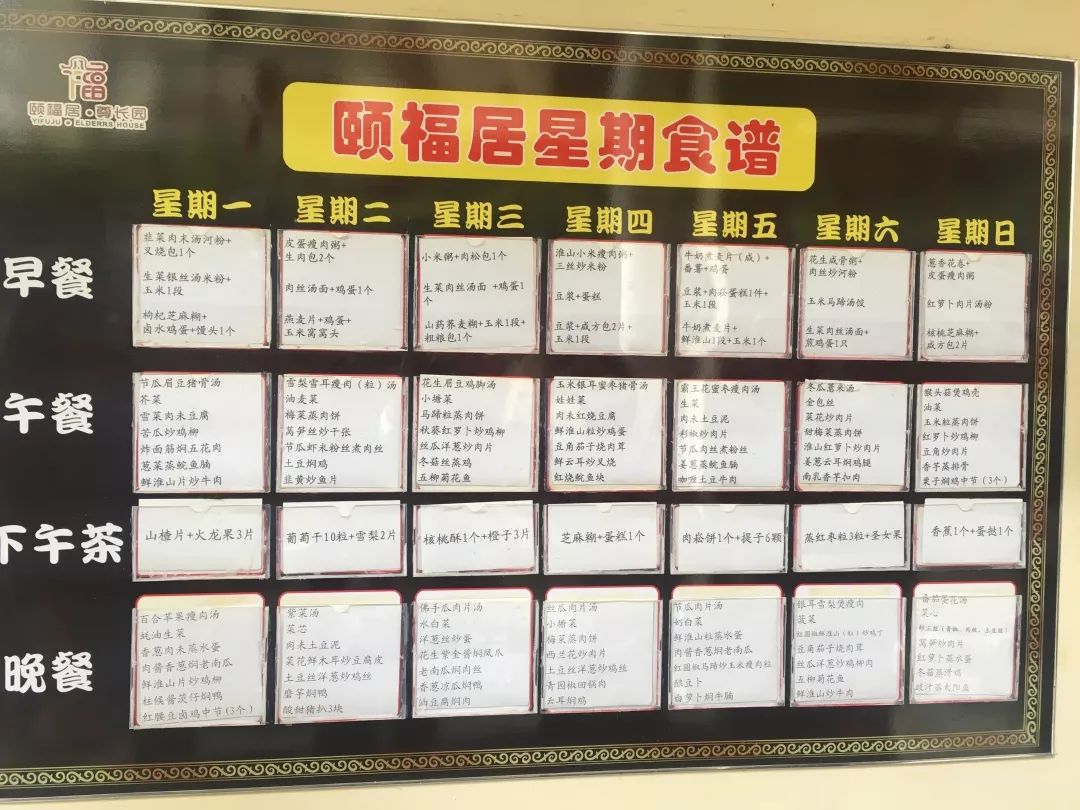 颐福居·尊长园
YIFUJU·ELDERRS HOUSE
颐福居星期食谱
星期一
星期二
星期三
星期四
星期五
星期六
星期日
早餐
韭菜肉末汤河粉+
叉烧包1个
生菜银丝汤米粉+
玉米1段
枸杞芝麻糊+
卤水鸡蛋+馒头1个
皮蛋瘦肉粥+
生肉包2个
肉丝汤面+鸡蛋1个
燕麦片+鸡蛋+
玉米窝窝头
小米粥+肉松包1个
生菜肉丝汤面 +鸡蛋1
个
山药荞麦糊+玉米1段+
粗粮包1个
淮山小米瘦肉粥+
三丝炒米粉
豆浆+蛋糕
豆浆+咸方包2片+
玉米1段
牛奶煮麦片(咸)+
番薯+鸡蛋
豆浆+肉崧蛋糕1件+
玉米1段
牛奶煮麦片+
鲜淮山1段+玉米1条
花生咸骨粥+
肉丝炒河粉
玉米马蹄汤饺
生菜肉丝汤面+
煎鸡蛋1只
葱香花卷+
皮蛋瘦肉粥
红萝卜肉片汤粉
核桃芝麻糊+
咸方包2片
午餐
节瓜眉豆猪骨汤
芥菜
雪菜肉未豆腐
苦瓜炒鸡柳
炸面筋焖五花肉
葱菜蒸鲩鱼腩
鲜淮山片炒牛肉
雪梨雪耳瘦肉(粒)汤
油麦菜
梅菜蒸肉饼
莴笋丝炒干张
节瓜虾米粉丝煮肉丝
土豆焖鸡
韭黄炒鱼片
花生眉豆鸡脚汤
小塘菜
马蹄粒蒸肉饼
秋葵红萝卜炒鸡柳
丝瓜洋葱炒肉片
冬菇丝蒸鸡
五柳菊花鱼
玉米银耳蜜枣猪骨汤
娃娃菜
肉未红烧豆腐
鲜淮山粒炒鸡蛋
豆角茄子烧肉茸
鲜云耳炒叉烧
红烧鲩鱼块
霸王花蜜枣瘦肉汤
生菜
肉未土豆泥
彩椒炒肉片
节瓜肉丝煮粉丝
姜葱蒸鲩鱼腩
咖喱土豆牛肉
冬瓜薏米汤
金包丝
菜花炒肉片
甜梅菜蒸肉饼
淮山红萝卜炒肉片
姜葱云耳焖鸡腿
南乳香芋扣肉
猴头菇煲鸡壳
油菜
玉米粒蒸肉饼
红萝卜炒鸡柳
豆角炒肉片
香芋蒸排骨
栗子焖鸡中节(3个)
下午茶
山楂片+火龙果3片
葡萄干10粒+雪梨2片
核桃酥1个+橙子3片
芝麻糊+蛋糕1个
肉崧饼1个+提子6颗
蒸红枣粒3粒+圣女果
香蕉1个+蛋挞1个
晚餐
百合苹果瘦肉汤
蚝油生菜
香葱肉未蒸水蛋
肉酱香葱焖老南瓜
鲜淮山片炒鸡柳
柱候酱茨仔焖鸭
红腰豆卤鸡中节(3个)
紫菜汤
菜芯
肉未土豆泥
菜花鲜木耳炒豆腐皮
土豆丝洋葱炒鸡丝
磨芋焖鸭
酸甜猪扒3块
佛手瓜肉片汤
水白菜
洋葱丝炒蛋
花生紫金酱焖凤爪
老南瓜焖肉丝
香葱凉瓜焖鸭
油豆腐焖肉
丝瓜肉片汤
小塘菜
梅菜蒸肉饼
西兰花炒肉片
土豆丝洋葱炒鸡丝
青园椒回锅肉
云耳焖鸡
节瓜肉片汤
奶白菜
鲜淮山粒蒸水蛋
肉酱香葱焖老南瓜
红圆椒马蹄炒玉米瘦肉粒
酸豆卜
白萝卜焖牛腩
银耳雪梨煲瘦肉
菠菜
红圆椒鲜淮山(粒)炒鸡丁
豆角茄子炒肉片
丝瓜洋葱炒鸡柳肉
五柳菊花鱼
鲜淮山炒牛肉
番茄蛋花汤
菜心
炒三丝(青椒、肉丝、土豆丝)
莴笋炒肉片
红萝卜蒸水蛋
冬菇蒸滑鸡
豉汁蒸太阳鱼